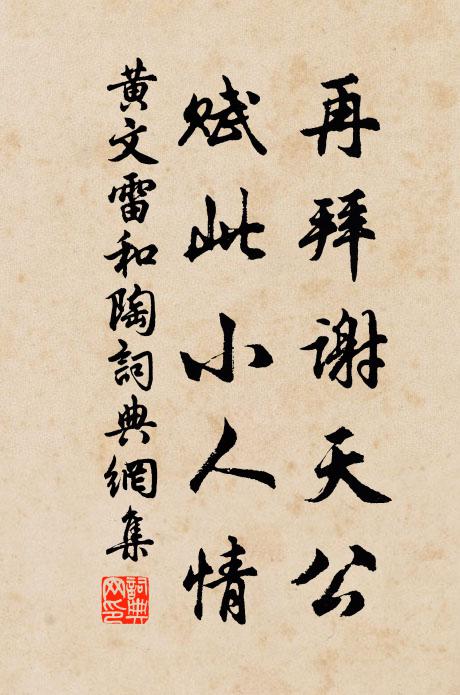 再拜谢天公
赋此小人情
黃文雷和陶詞典網集
詞典
网印